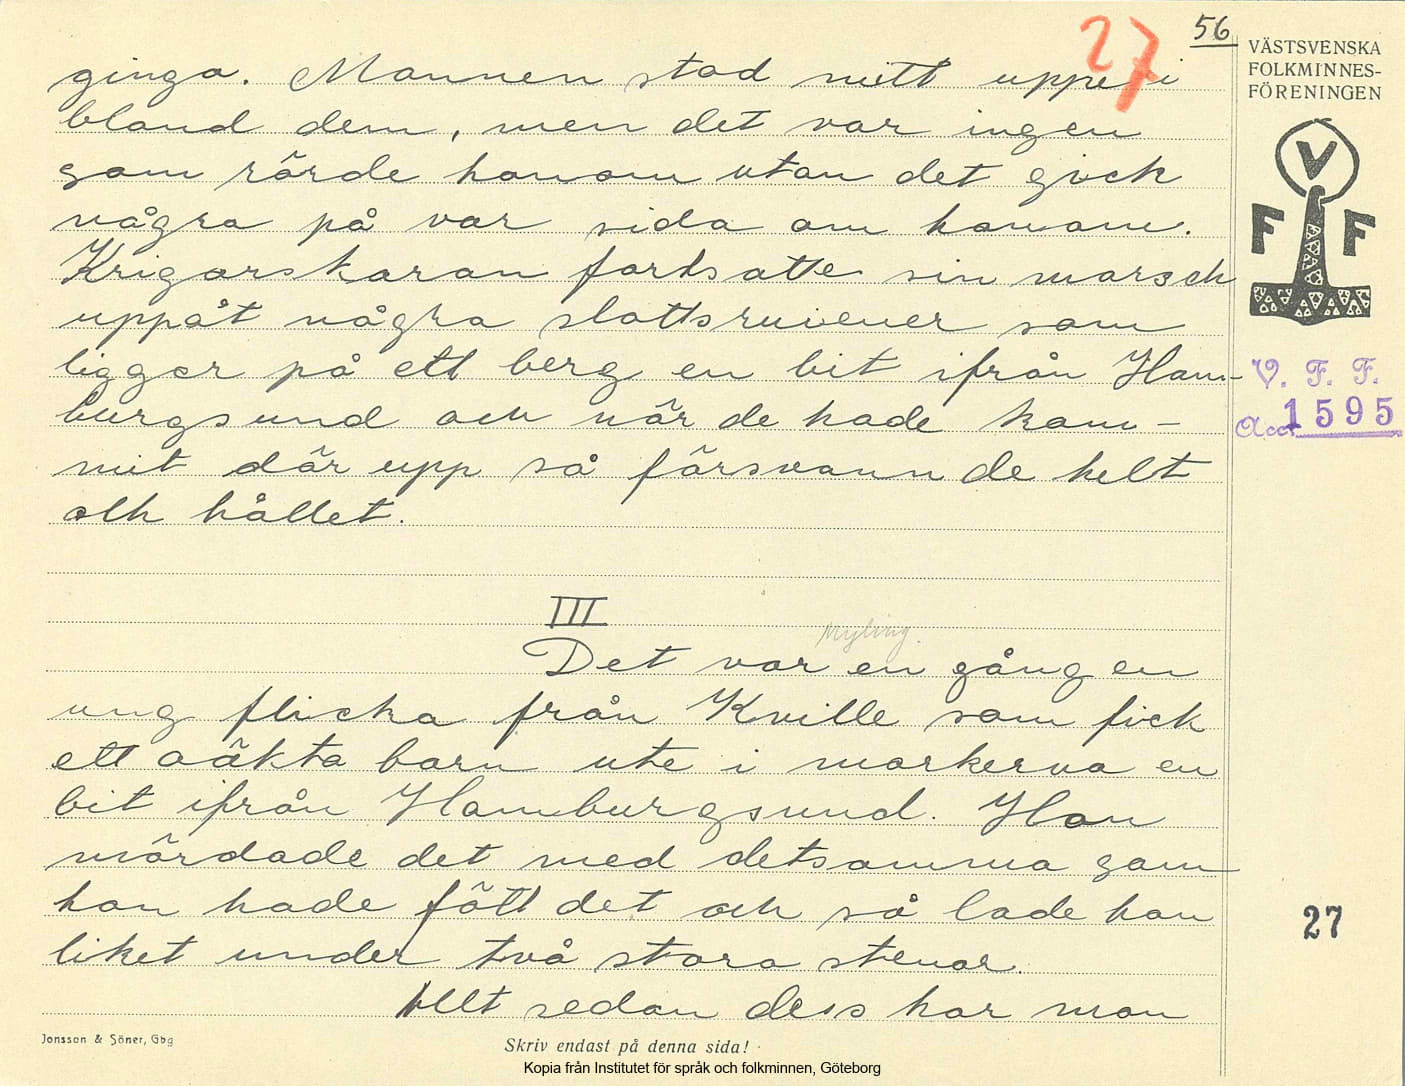 27
56
VÄSTSVENSKA
FOLKMINNES-
FÖRENINGEN
V
F F
V. F. F.
Acc. 1595
ginga. Mannen stod mitt uppe i
bland dem, men det var ingen
som rörde honom utan det gick
några på var sida om honom.
Krigarskaran fortsatte sin marsch
uppåt några slottsruiner som
ligger på ett berg en bit ifrån Ham-
burgsund och när de hade kom-
mit där upp så försvann de helt
och hållet.
III
Myling.
Det var en gång en
ung flicka från Kville som fick
ett oäkta barn ute i markerna en
bit ifrån Hamburgsund. Hon
mördade det med detsamma som
hon hade fött det och så lade hon
liket under två stora stenar.
Allt sedan dess har man
27
Jonsson & Söner, Gbg
Skriv endast på denna sida!
Kopia från Institutet för språk och folkminnen, Göteborg